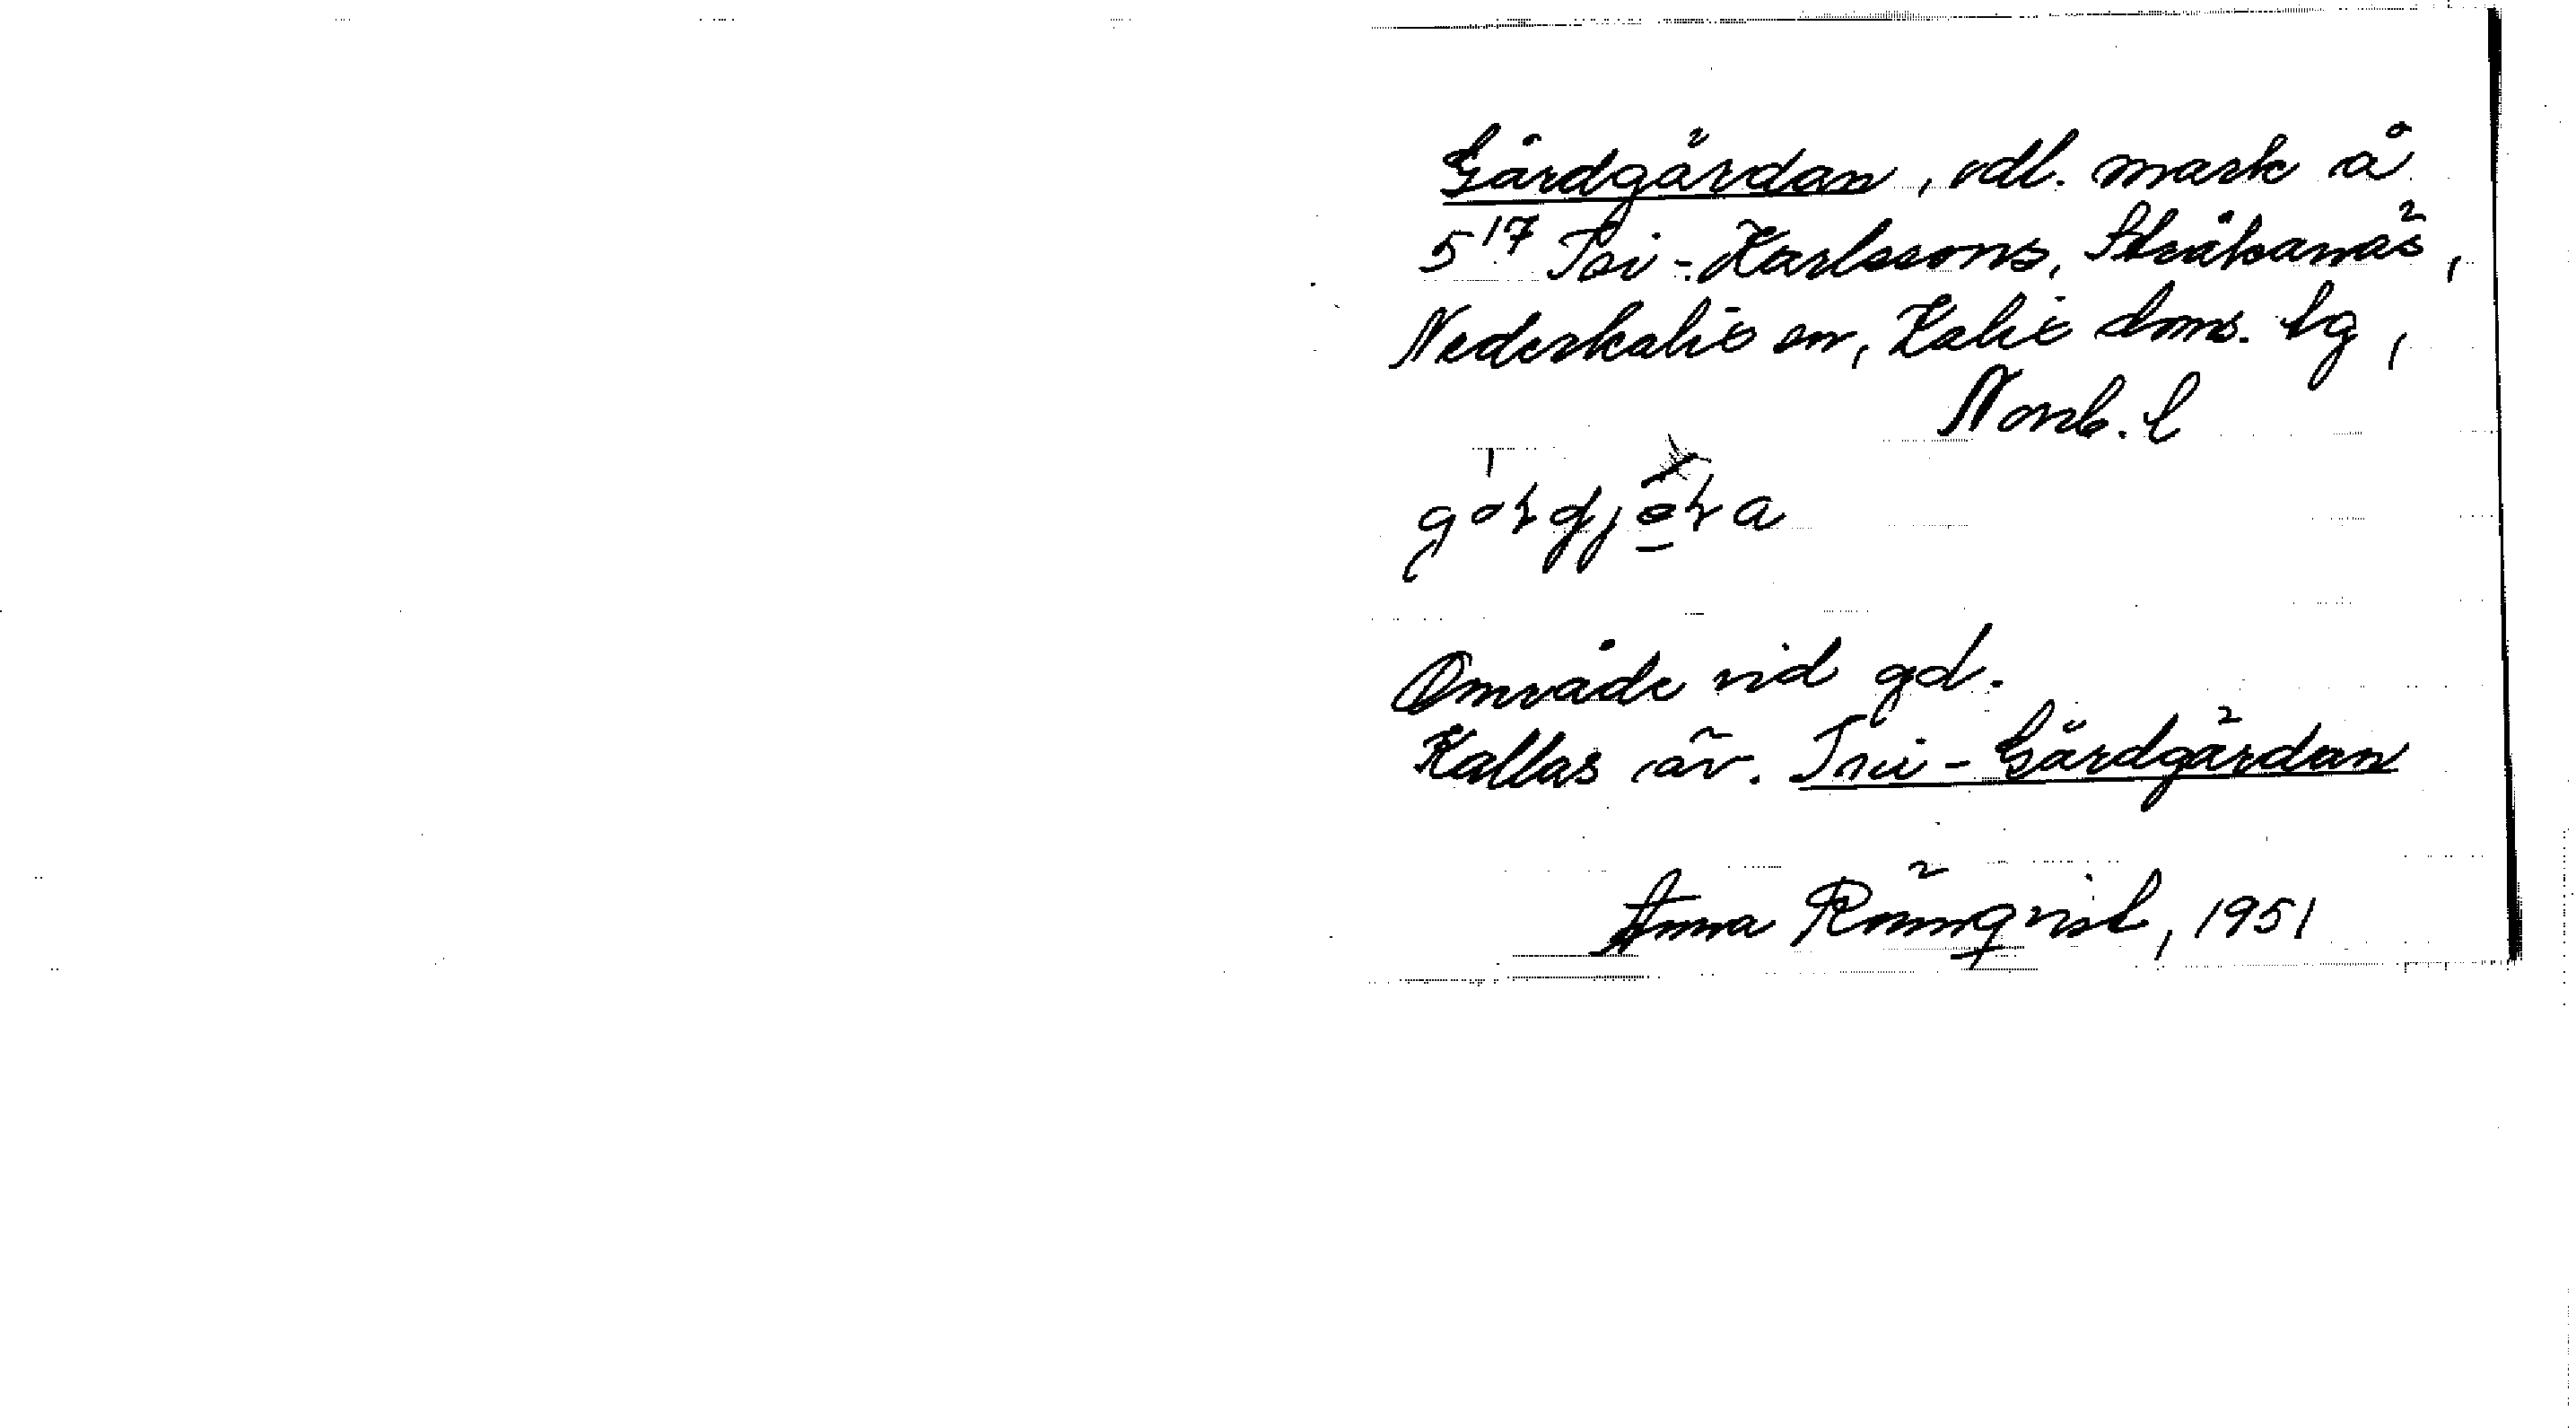 Gårdgärdan, odl. mark å
5¹⁷ Pei-Karlssons, Stråkanäs,
Nederkalix sn, Kalix doms. lg,
Norrb. l
Område vid gd.
Kallas äv. Inu-Gårdgärdan
Anna Rönnqvist, 1951